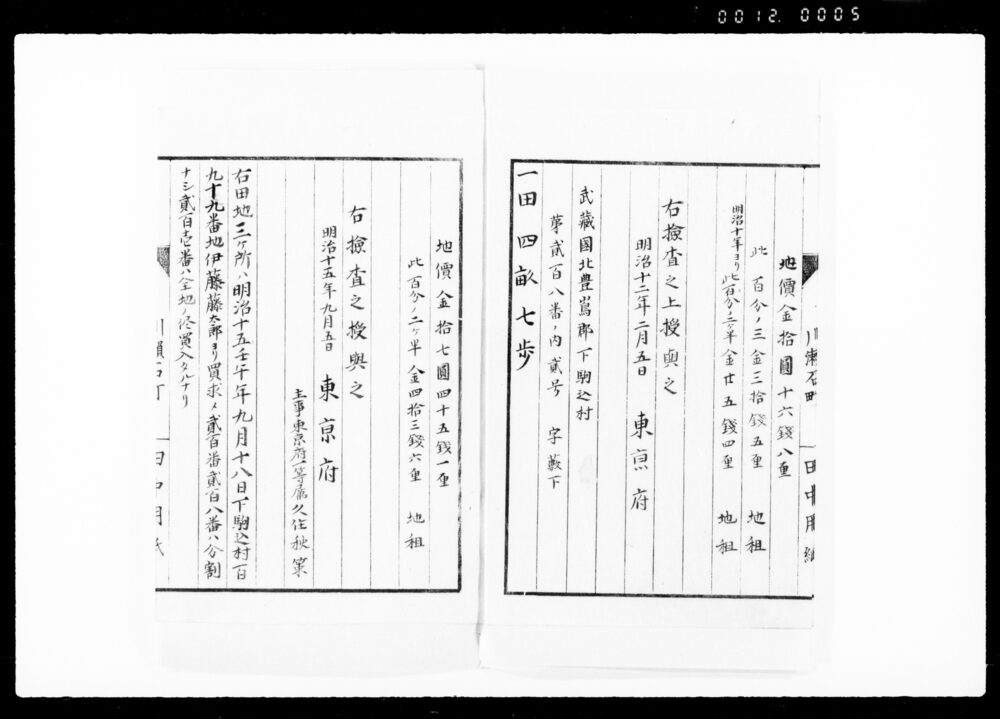 0012. 0005
地價金拾圓十六錢八厘
此百分ノ三金三拾錢五厘 地租
明治十年ヨリ此百分ノ二ヶ半金廿五錢四厘 地租
右撿査之上授與之
明治十二年二月五日 東京府
武藏國北豊嶌郡下駒込村
第貳百八番ノ内貳号 字籔下
一田四畝七歩
地價金拾七圓四十五錢一厘
此百分ノ二ヶ半金四拾三錢六厘 地租
右撿査之授與之
明治十五年九月五日 東京府
主事東京府一等属久住秋策
右田地三ヶ所ハ明治十五壬午年九月十八日下駒込村百
九十九番地伊藤藤太郎ヨリ買求メ貳百番貳百八番ハ分割
ナシ貳百壱番ハ全地ノ侭買入タルナリ